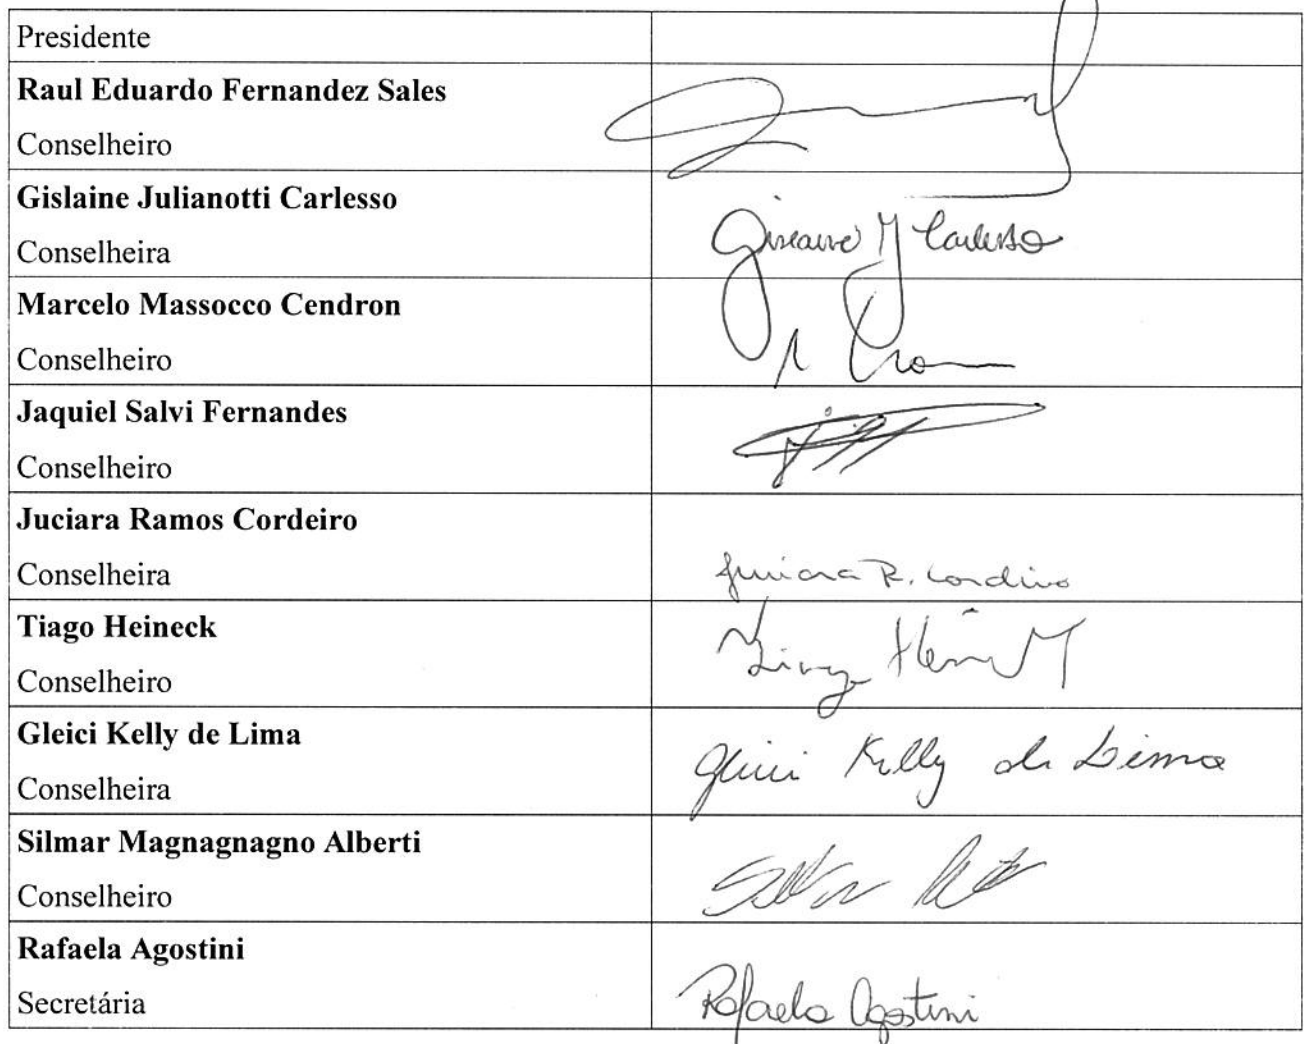 Presidente
Raul Eduardo Fernandez Sales
Conselheiro
Gislaine Julianotti Carlesso
Conselheira
Gislaine J Carlesso
Marcelo Massocco Cendron
Conselheiro
Jaquiel Salvi Fernandes
Conselheiro
Juciara Ramos Cordeiro
Conselheira
Juciara R. Cordeiro
Tiago Heineck
Conselheiro
Tiago Heineck
Gleici Kelly de Lima
Conselheira
Gleici Kelly de Lima
Silmar Magnagnagno Alberti
Conselheiro
Rafaela Agostini
Secretária
Rafaela Agostini